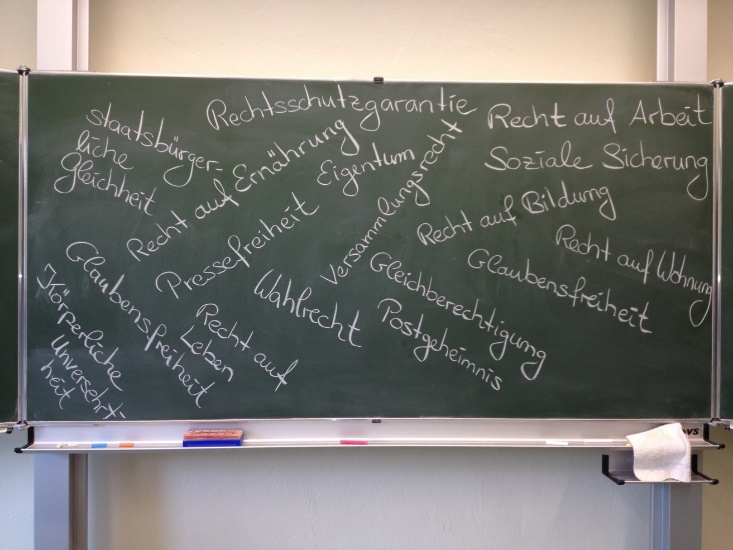 Rechtsschutzgarantie
staatsbürger-
liche
Gleichheit
Recht auf Ernährung
Eigentum
Versammlungsrecht
Recht auf Arbeit
Soziale Sicherung
Recht auf Bildung
Recht auf Wohnung
Pressefreiheit
Glaubensfreiheit
Wahlrecht
Gleichberechtigung
Postgeheimnis
Glaubensfreiheit
Recht auf
Leben
Körperliche
Unversehrt-
heit